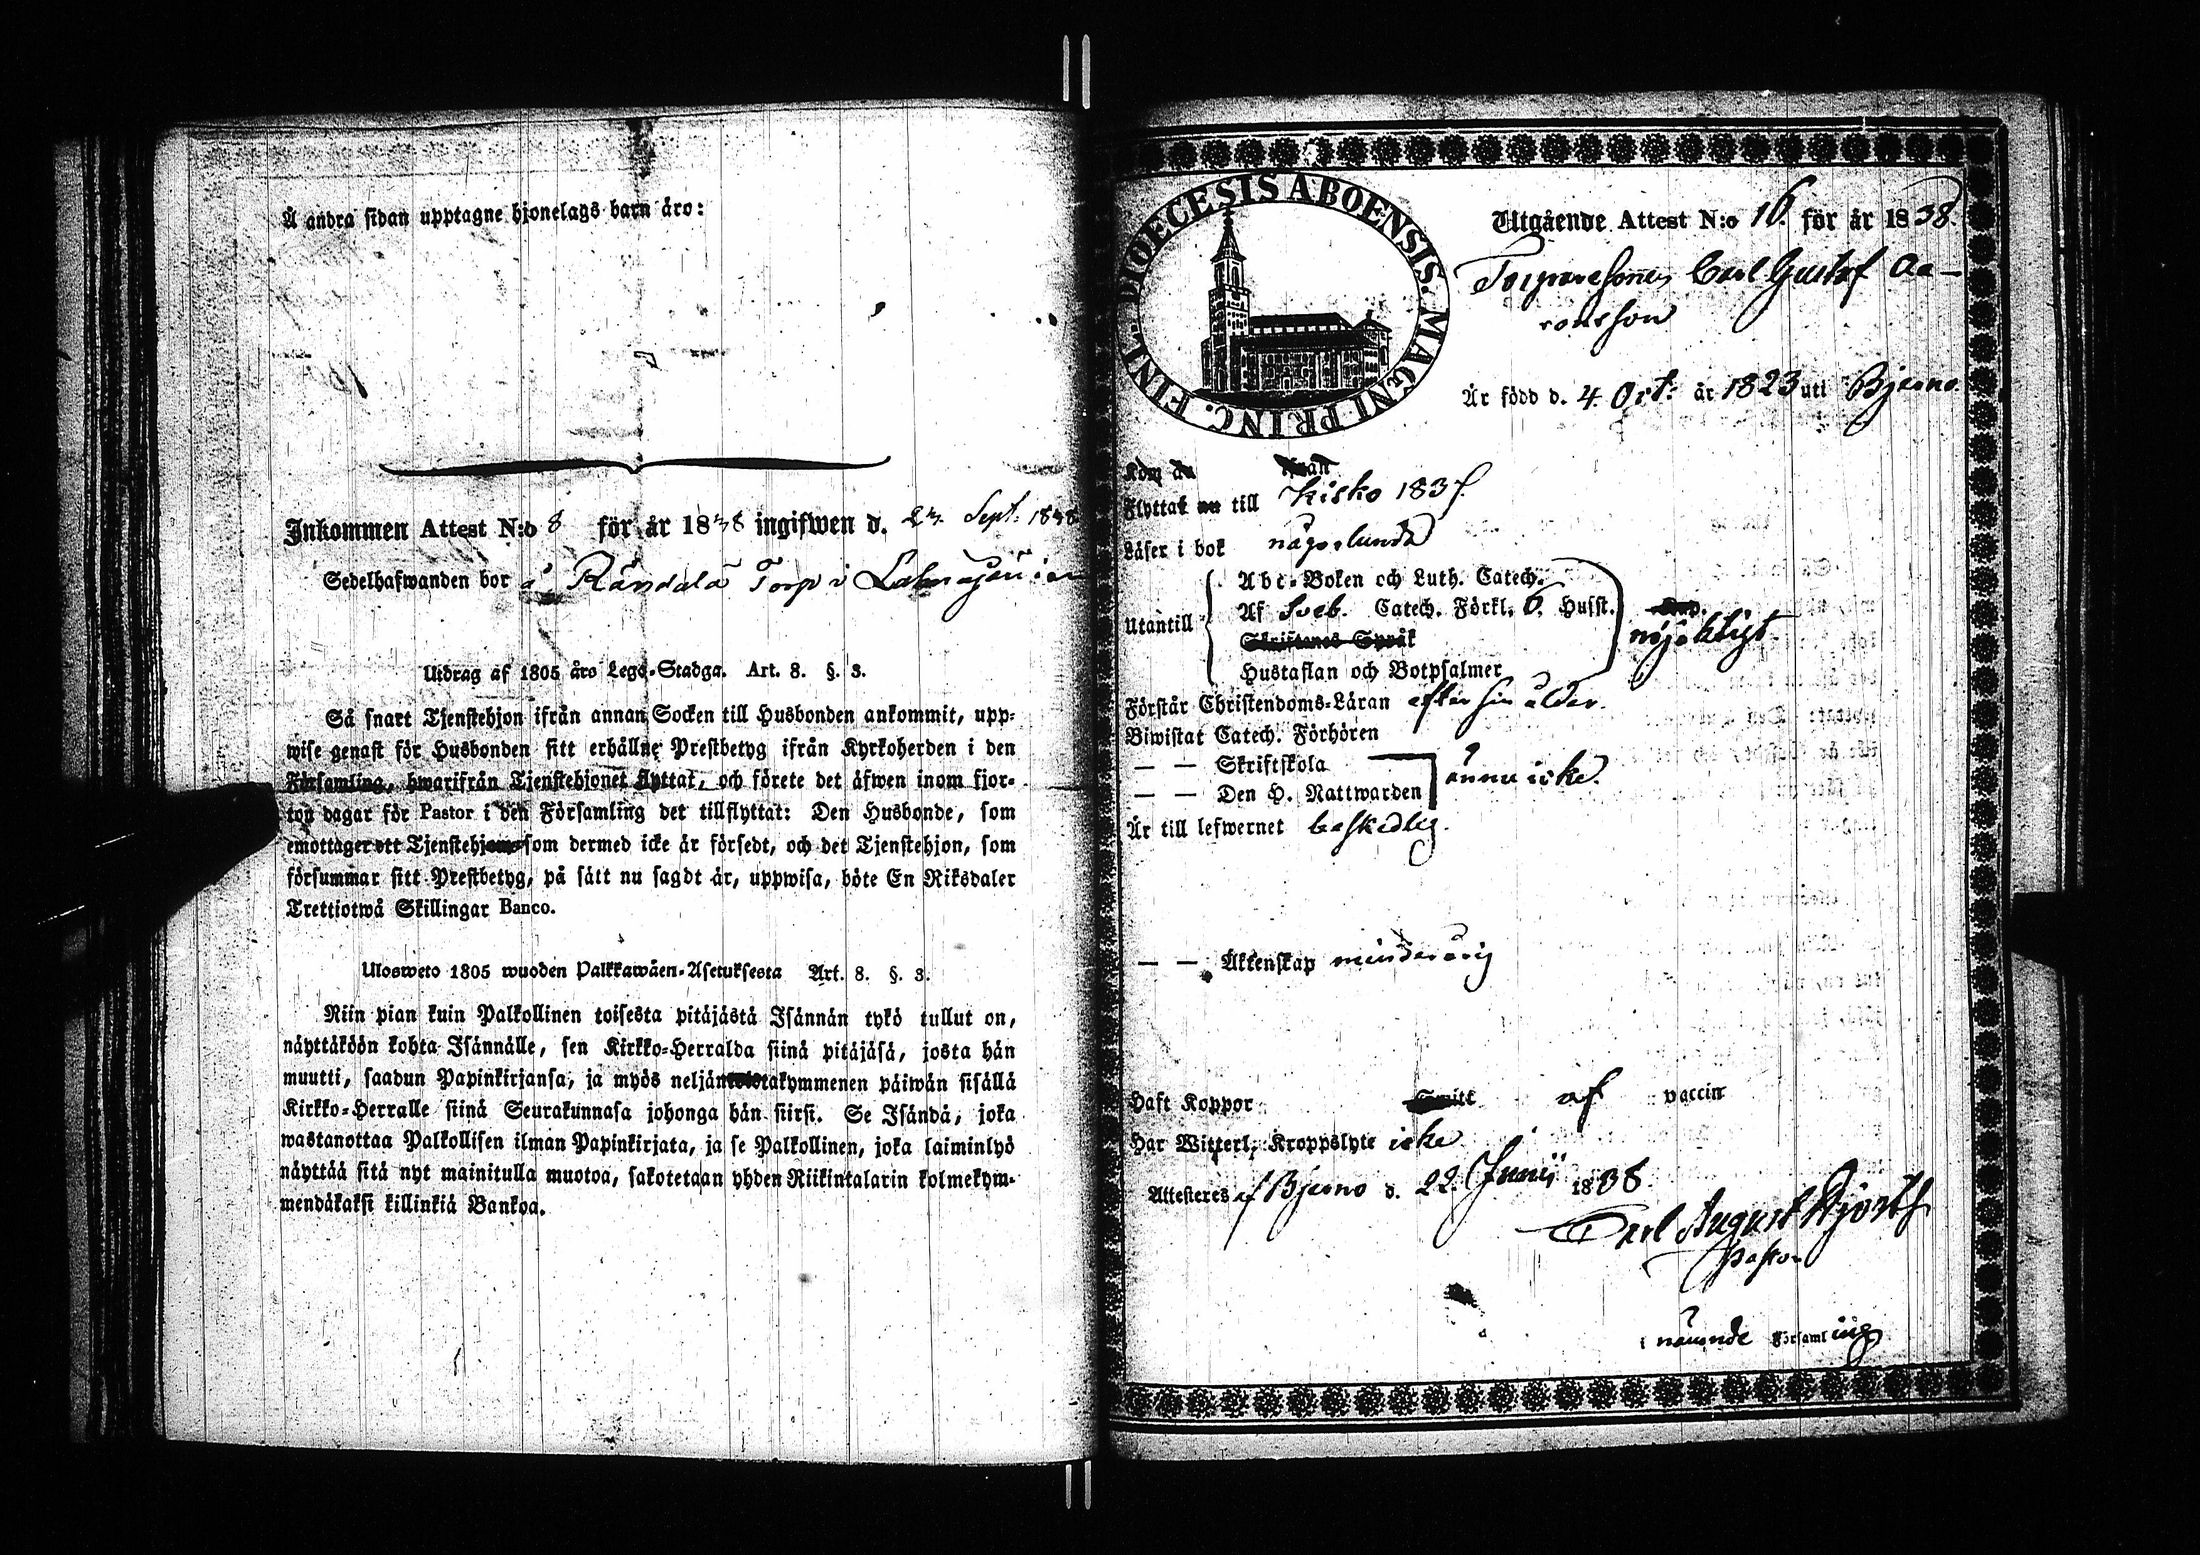 Å andra sidan upptagne hjonelags barn äro:
Inkommen Attest N:o 8 för år 1838 ingifwen d. 23. Sept. 1838
Sedelhafwanden bor å Rändälä Torp i
Utdrag af 1805 års Lego-Stadga. Art. 8. §. 3.
Så snart Tjenstehjon ifrån annan Socken till Husbonden ankommit, upp-
wise genast för Husbonden sitt erhållne Prestbetyg ifrån Kyrkoherden i den
Församling, hwarifrån Tjenstehjonet flyttat, och förete det äfwen inom fjor-
ton dagar för Pastor i den Församling det tillflyttat: Den Husbonde, som
emottager ett Tjenstehjon som dermed icke är försedt, och det Tjenstehjon, som
försummar sitt Prestbetyg, på sätt nu sagdt är, uppwisa, böte En Riksdaler
Trettiotwå Skillingar Banco.
Ulosweto 1805 wuoden Palkkawäen-Asetuksesta Art. 8. §. 3.
Niin pian kuin Palkollinen toisesta pitäjästä Isännän tykö tullut on,
näyttäköön kohta Isännälle, sen Kirkko-Herralda siinä pitäjäsä, josta hän
muutti, saadun Papinkirjansa, ja myös neljäntoistakymmenen päiwän sisällä
Kirkko-Herralle siinä Seurakunnasa johonga hän siirsi. Se Isändä, joka
wastanottaa Palkollisen ilman Papinkirjata, ja se Palkollinen, joka laiminlyö
näyttää sitä nyt mainitulla muotoa, sakotetaan yhden Riikintalarin kolmekym-
mendäkaksi killinkiä Bankoa.
DIOECESIS ABOENSIS. MAGNI PRINC. FINL.
Utgående Attest N:o 16. för år 1838.
Torparesonen Carl Gustaf Aa-
ronsson
Är född d. 4. Oct: år 1823 uti Bjerno
Kom du ifrån
Flyttat nu till Kisko 1837.
Läser i bok någorlunda
Utantill
Abc-Boken och Luth. Catech.
Af Sveb. Catech. Förkl. O. Husst.
Skriftenes Språk
Hustaflan och Botpsalmer
nöjaktigt.
Förstår Christendoms-Läran efter sin ålder.
Biwistat Catech. Förhören
— — Skriftskola
— — Den H. Nattwarden
ännu icke.
Är till lefwernet beskedlig.
— — Äktenskap minderårig
Haft Koppor af vaccin
Har Witterl. Kroppslyte icke
Attesteres af Bjerno d. 22. Junii 1838.
Carl August Hjorth
Pastor
i nämnde Församling